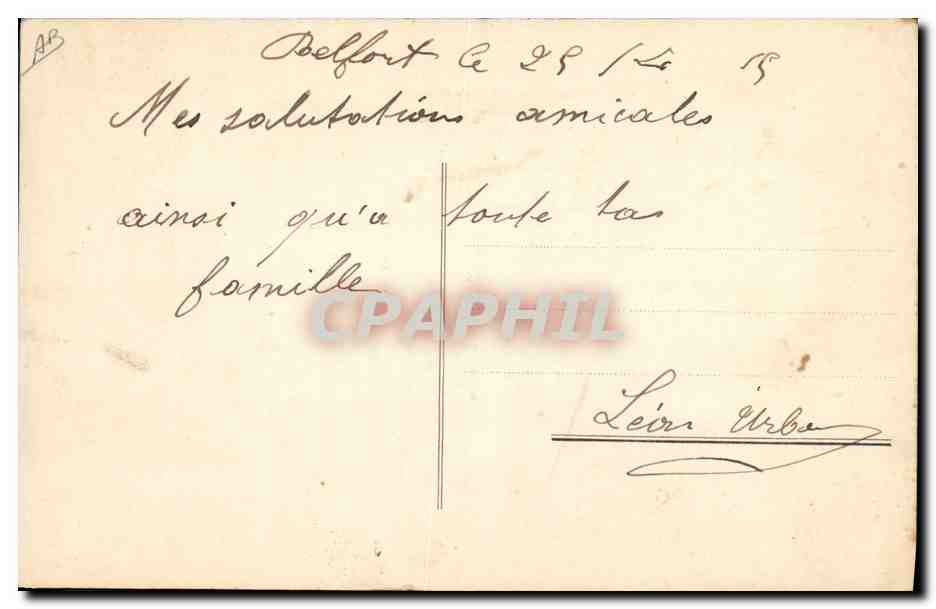 AB
Belfort le 25 15
Mes salutations amicales
ainsi qu'a toute tas
famille
CPAPHIL
Léon Urban